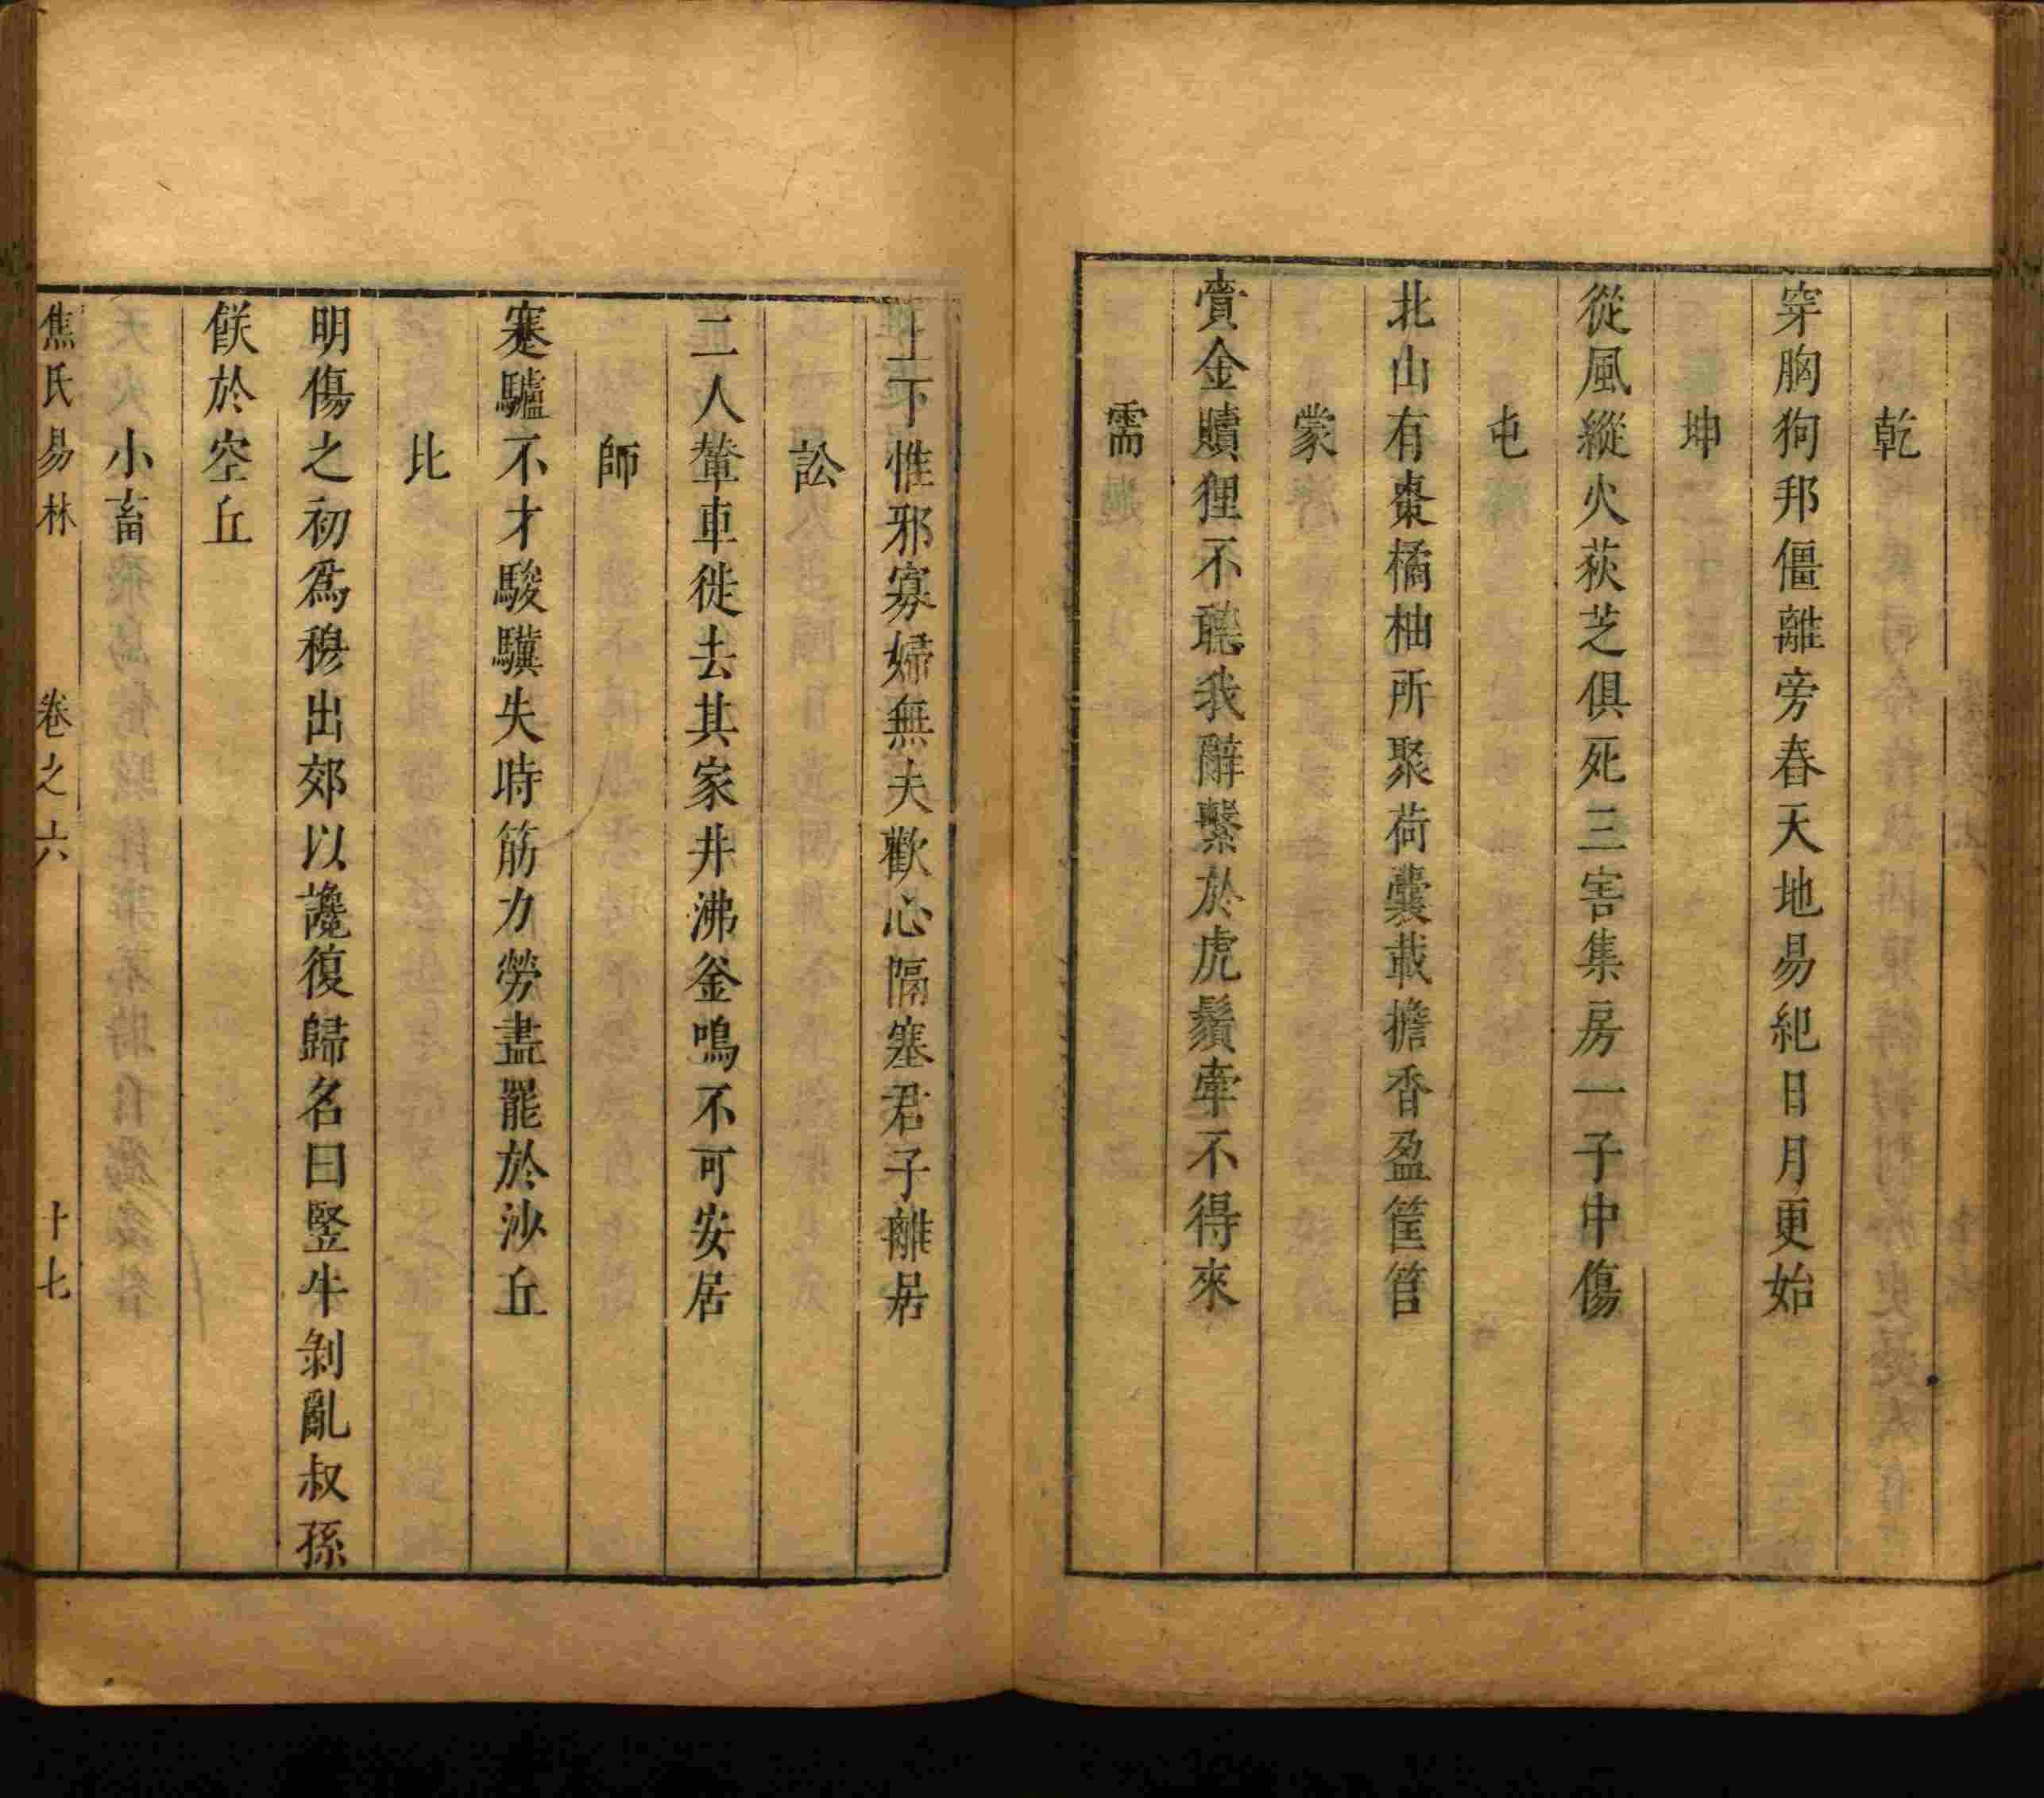 乾
穿胸狗邦僵離旁春天地易紀日月更始
坤
從風縱火荻芝俱死三害集房一子中傷
屯
北山有棗橘柚所聚荷囊載擔香盈筐筥
蒙
賫金贖狸不聽我辭繫於虎鬚牽不得來
需
上下惟邪寡婦無夫歡心隔塞君子離居
訟
二人輦車徙去其家井沸釜鳴不可安居
師
蹇驢不才駿驥失時筋力勞盡罷於沙丘
比
明傷之初爲穆出郊以讒復歸名曰豎牛剝亂叔孫
餒於空丘
小畜
焦氏易林 卷之六 十七